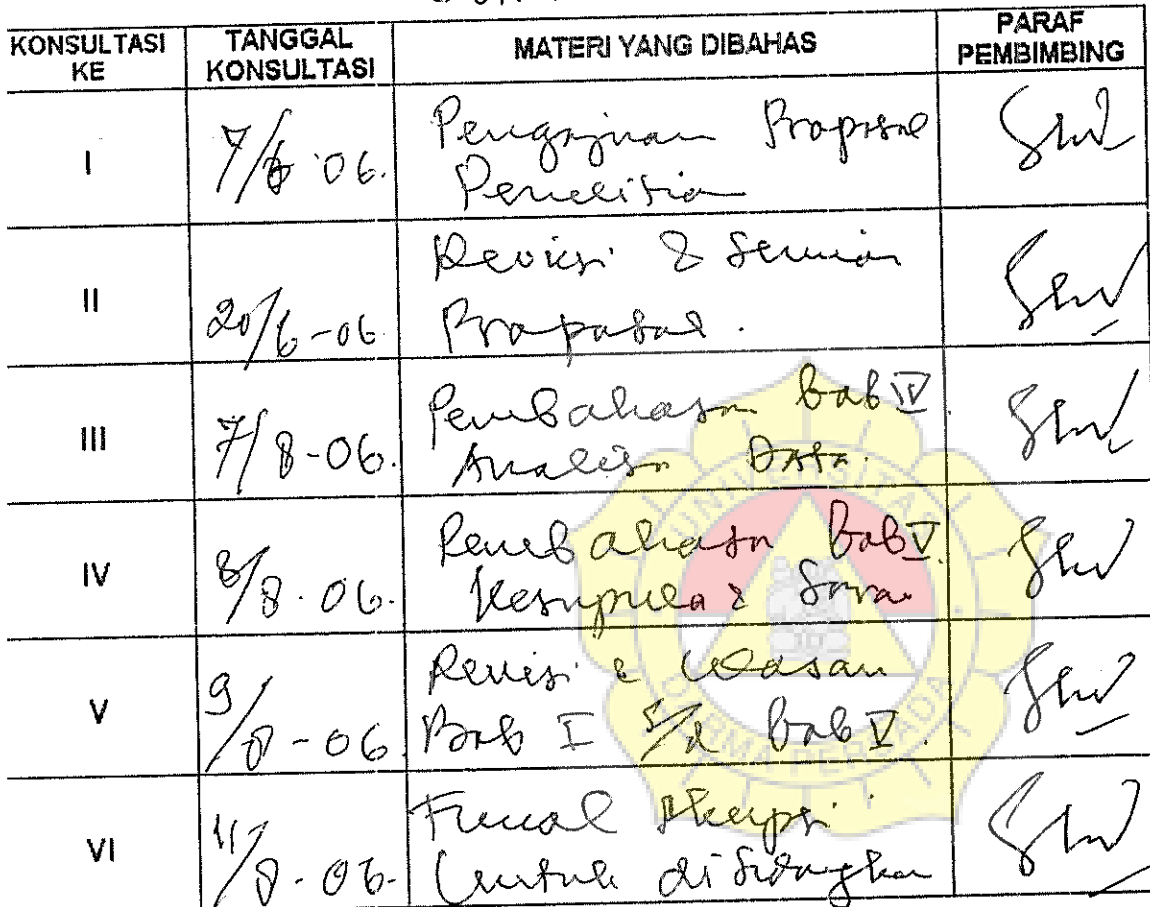 KONSULTASI KE
TANGGAL KONSULTASI
MATERI YANG DIBAHAS
PARAF PEMBIMBING
I
7/6 06.
Pengajuan Proposal
Penelitian
II
20/6-06
Revisi & Seminar
Proposal.
III
7/8-06.
Pembahasan bab IV
Analisa Data.
IV
8/8.06.
Pembahasan Bab V.
Kesimpulan & Saran
V
9/8-06
Revisi & Ulasan
Bab I s/d Bab V.
VI
11/8.06-
Final Skripsi
Untuk disidangkan
UNIVERSITAS
DARMA PERSADA